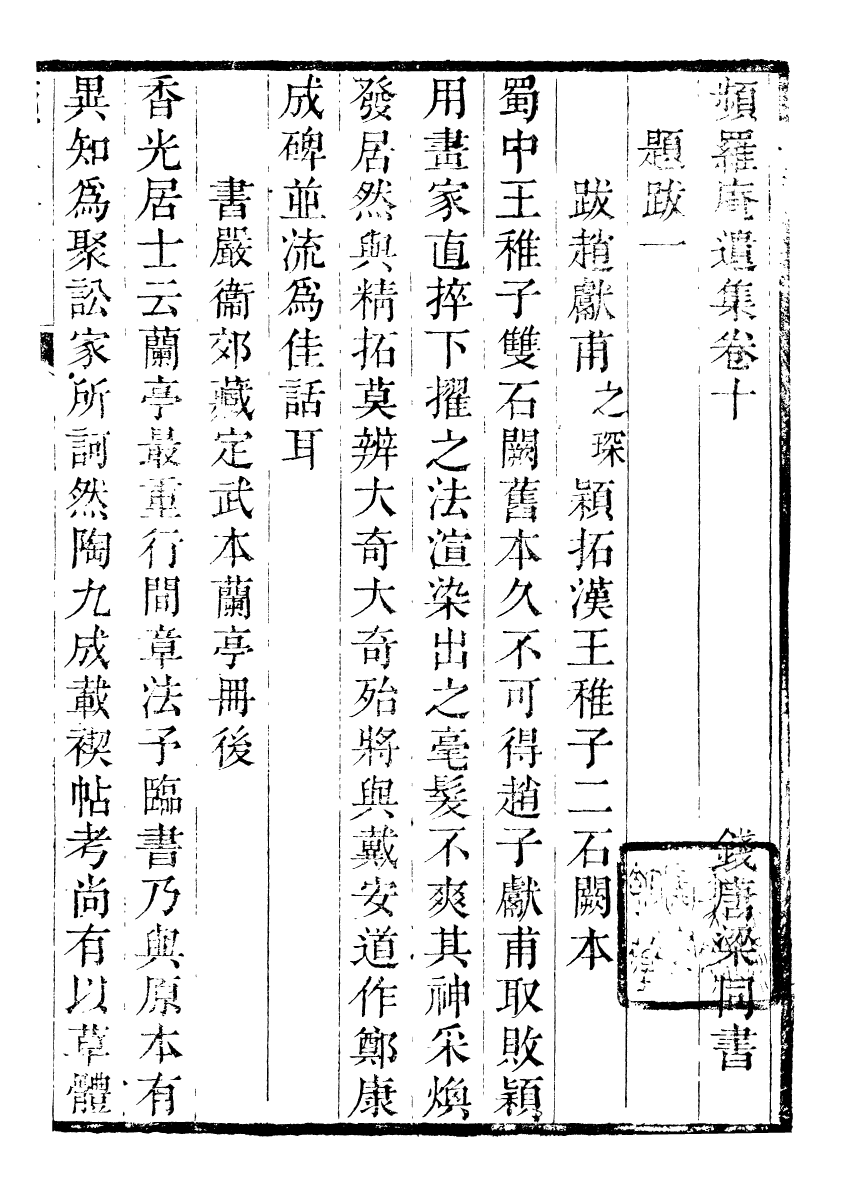 頻羅庵遺集卷十
錢唐梁同書
題跋一
跋趙獻甫之琛穎拓漢王稚子二石闕本
蜀中王稚子雙石闕舊本久不可得趙子獻甫取敗穎
用畫家直捽下擢之法渲染出之毫髮不爽其神采煥
發居然與精拓莫辨大奇大奇殆將與戴安道作鄭康
成碑並流爲佳話耳
書嚴衞郊藏定武本蘭亭冊後
香光居士云蘭亭最重行間章法予臨書乃與原本有
異知爲聚訟家所訶然陶九成載禊帖考尚有以草體